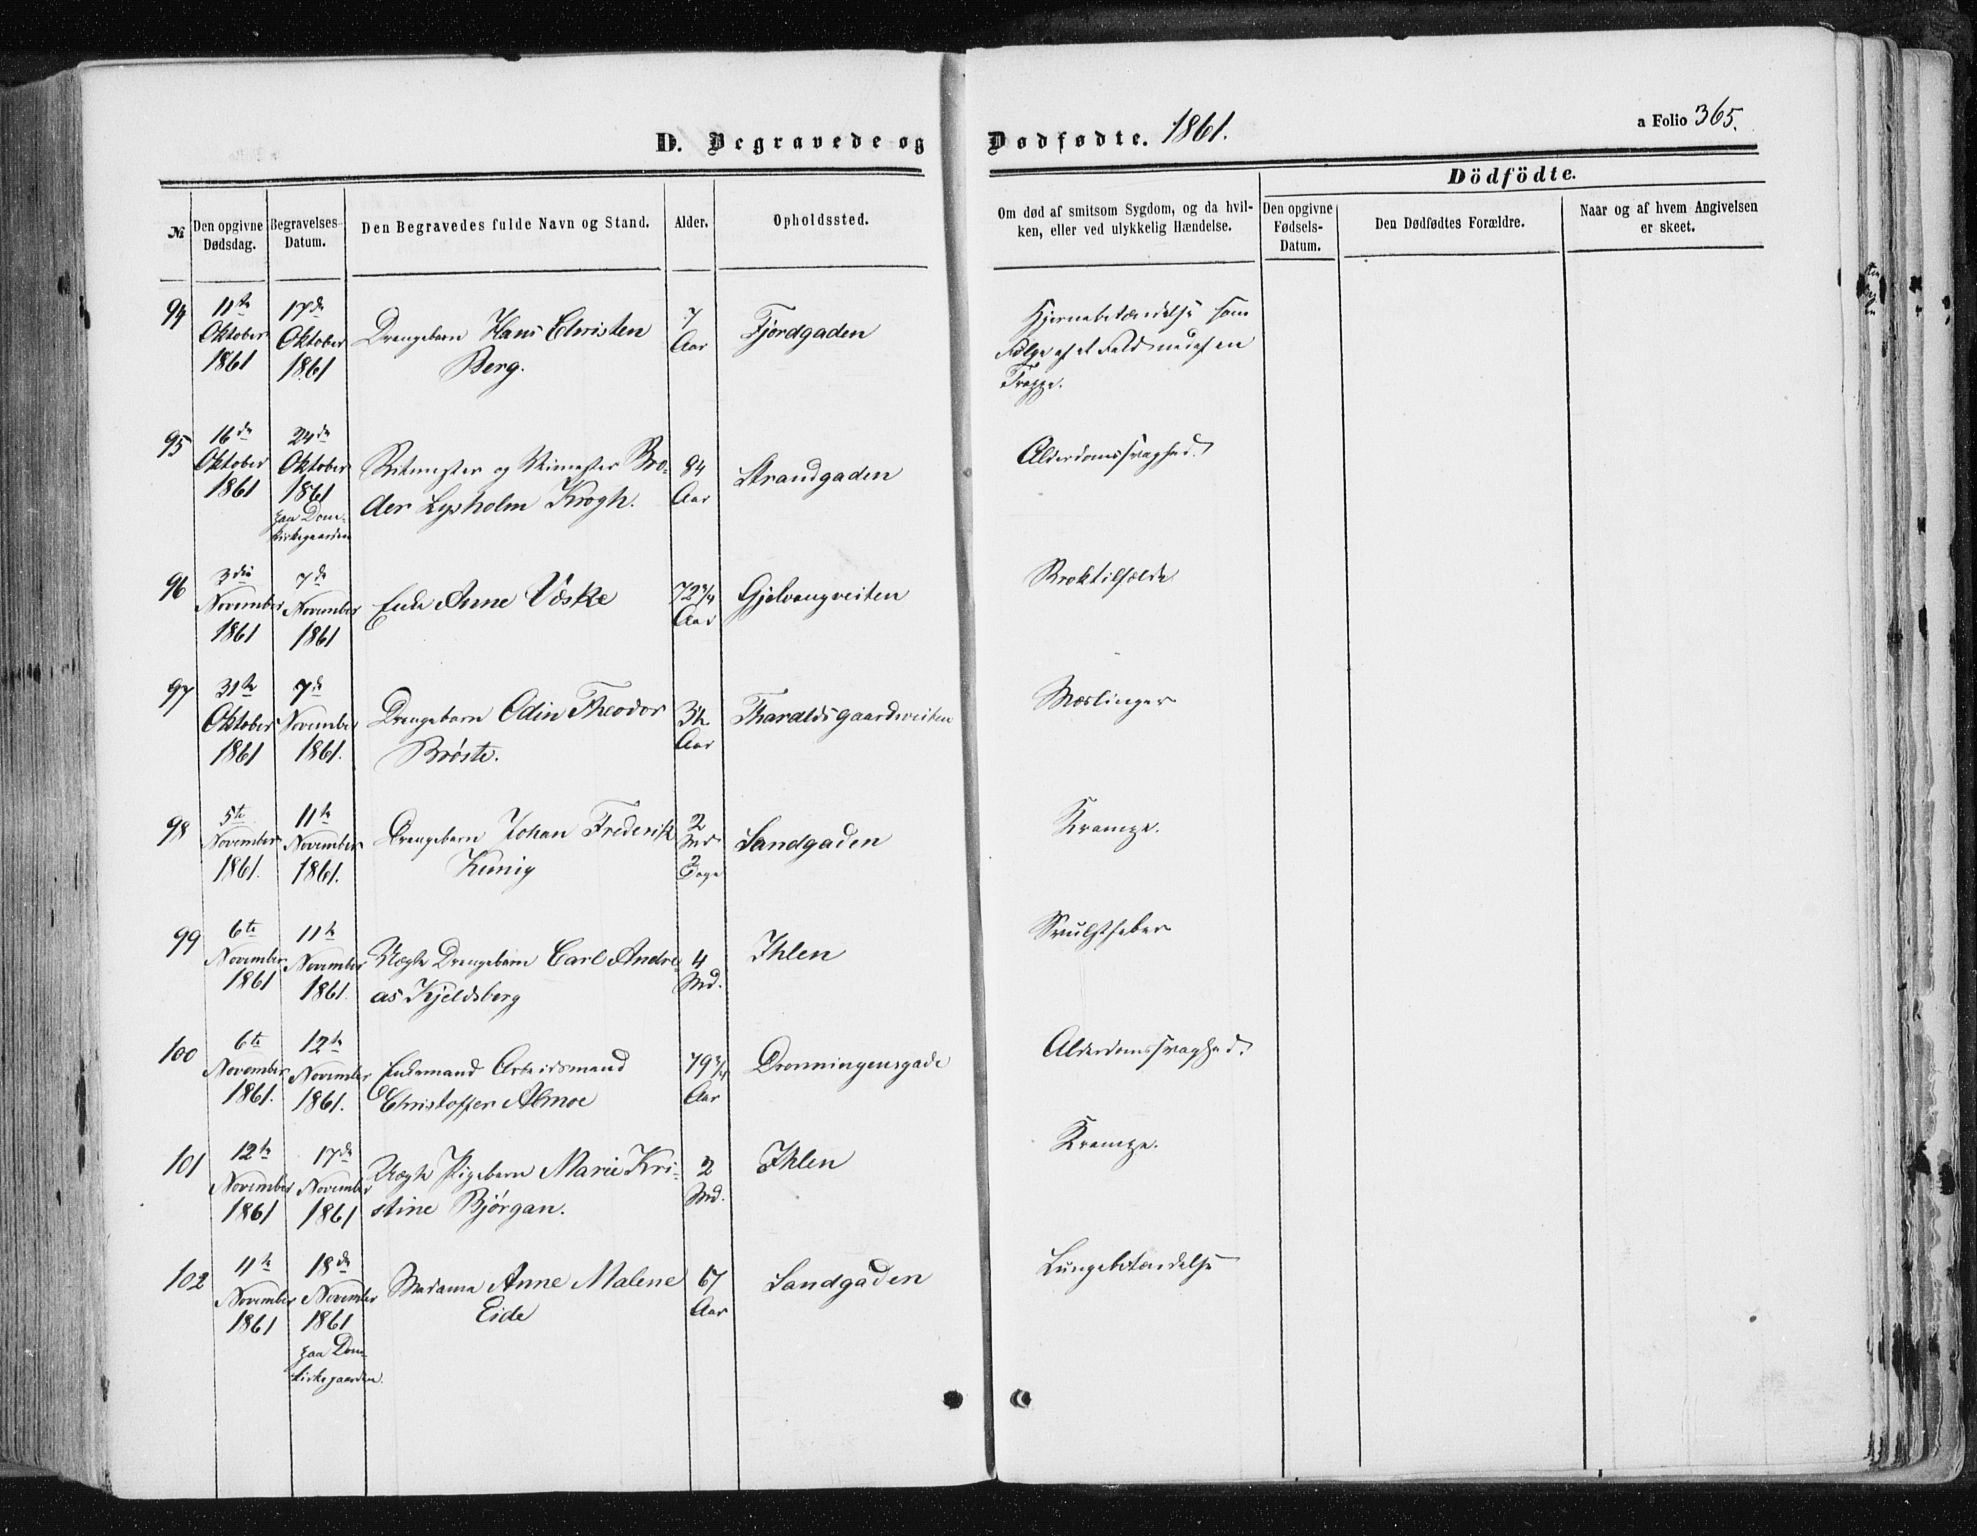 D. Begravede og Dødfødte. 1861.
a Folio 365.
Dödfödte.
№
Den opgivne Dødsdag.
Begravelses-Datum.
Den Begravedes fulde Navn og Stand.
Alder.
Opholdssted.
Om død af smitsom Sygdom, og da hvil-
ken, eller ved ulykkelig Hændelse.
Den opgivne Fødsels-Datum.
Den Dødfødtes Forældre.
Naar og af hvem Angivelsen
er skeet.
94
11te Oktober 1861
17de Oktober 1861
Drengebarn Hans Christen
Berg.
7 Aar
Fjordgaden
Hjernebetændelse som
Følge af et Fald ned af en
Trappe.
95
16de Oktober 1861
24de Oktober 1861 paa Dom-
kirkegaarden
Ritmester og Veimester Bro-
der Lysholm Krogh.
84 Aar
Strandgaden
Alderdomssvaghed.
96
3die November 1861
7de November 1861
Enke Anne Vöske
72 3/4 Aar
Gjelvangveiten
Broktilfælde
97
31te Oktober 1861
7de November 1861.
Drengebarn Odin Theodor
Brøste.
Aar
Tharaldsgaardsveiten
Mæslinger
98
5te November 1861.
11te November 1861.
Drengebarn Johan Frederik
Kunig
2 Md 2 Dage
Sandgaden
Krampe.
99
6te November 1861
11te November 1861.
Uægte Drengebarn Carl Andre-
as Kjeldsberg
4 Md.
Ihlen
Svulstfeber
100
6te November 1861.
12te November 1861.
Enkemand Arbeidsmand
Christoffer Almoe
79 3/4 Aar
Dronningensgade
Alderdomssvaghed.
101
12te November 1861
17de November 1861
Uægte Pigebarn Marie Kri-
stine Bjørgan.
2 Md.
Ihlen
Krampe.
102
11te November 1861
18de November 1861 paa Dom-
kirkegaarden.
Madame Anne Malene
Eide
67 Aar
Sandgaden
Lungebetændelse